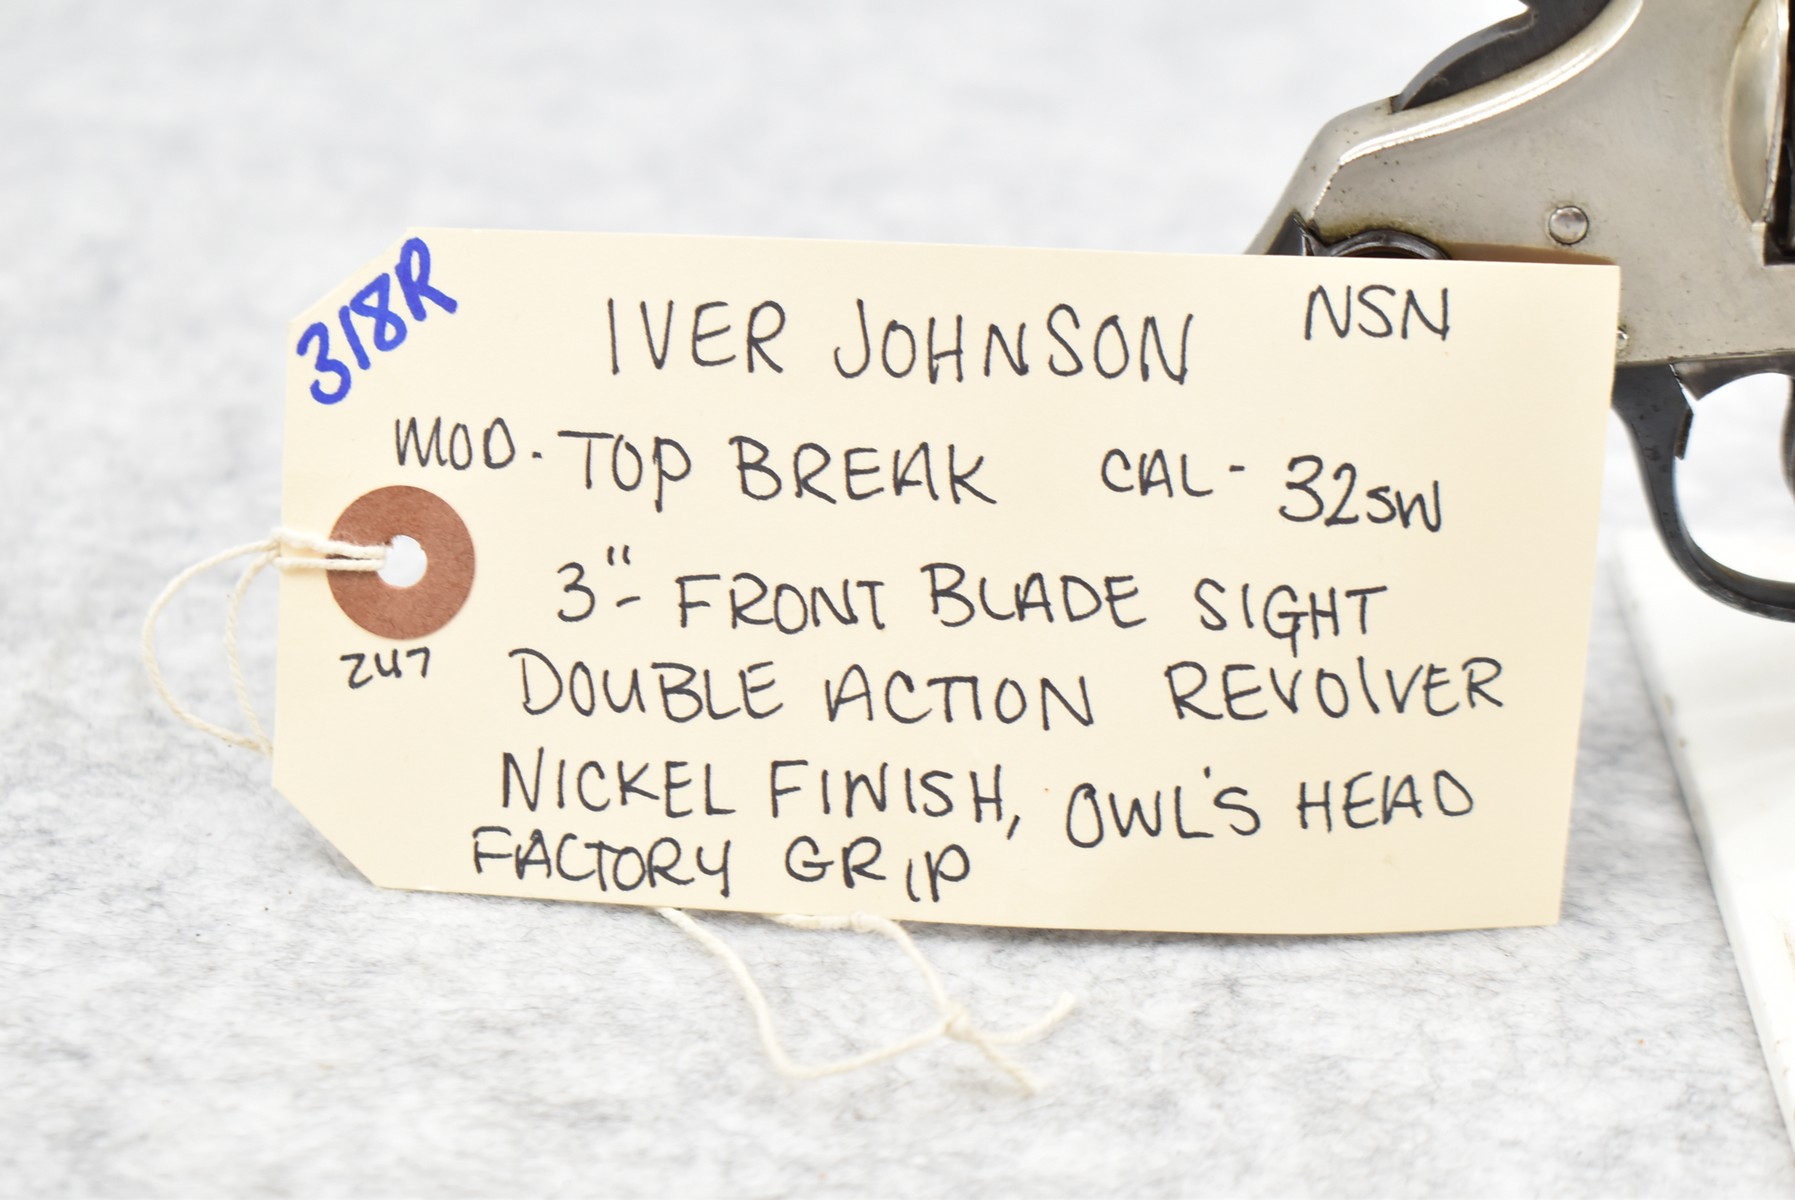 318R
IVER JOHNSON NSN
MOD. TOP BREAK CAL- 32SW
3"- FRONT BLADE SIGHT
247
DOUBLE ACTION REVOLVER
NICKEL FINISH, OWL'S HEAD
FACTORY GRIP